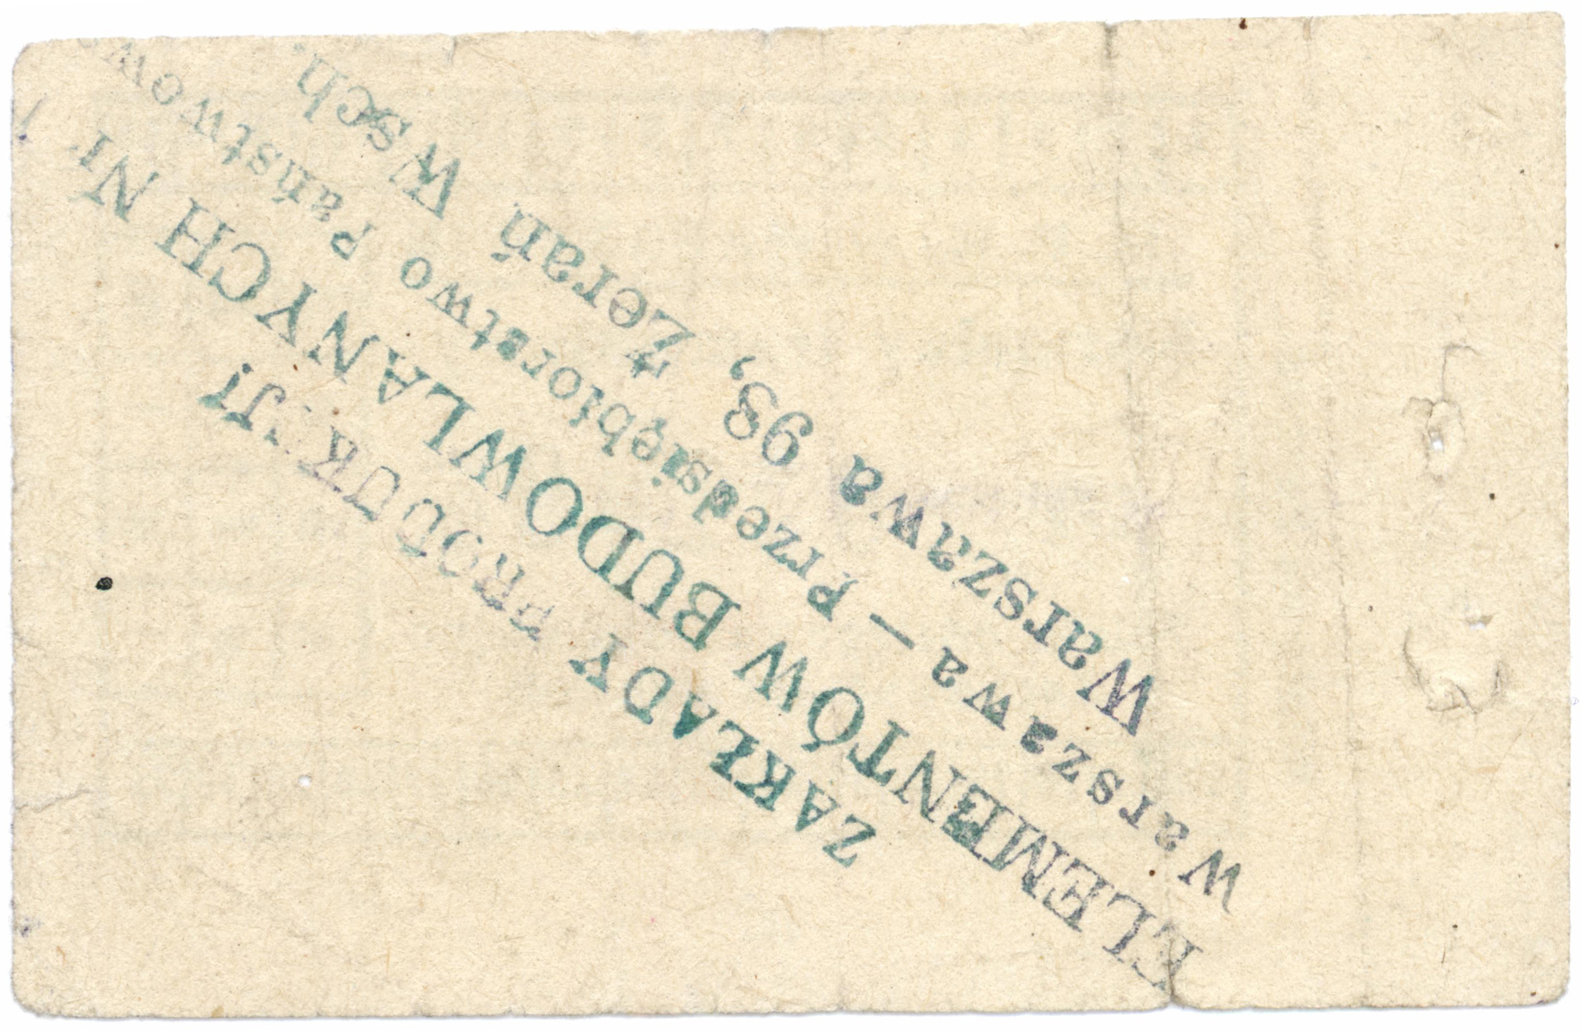 ZAKŁADY PRODUKCJI
ELEMENTÓW BUDOWLANYCH Nr
Warszawa — Przedsiębiorstwo Państwow
Warszawa 98, Żerań Wsch.